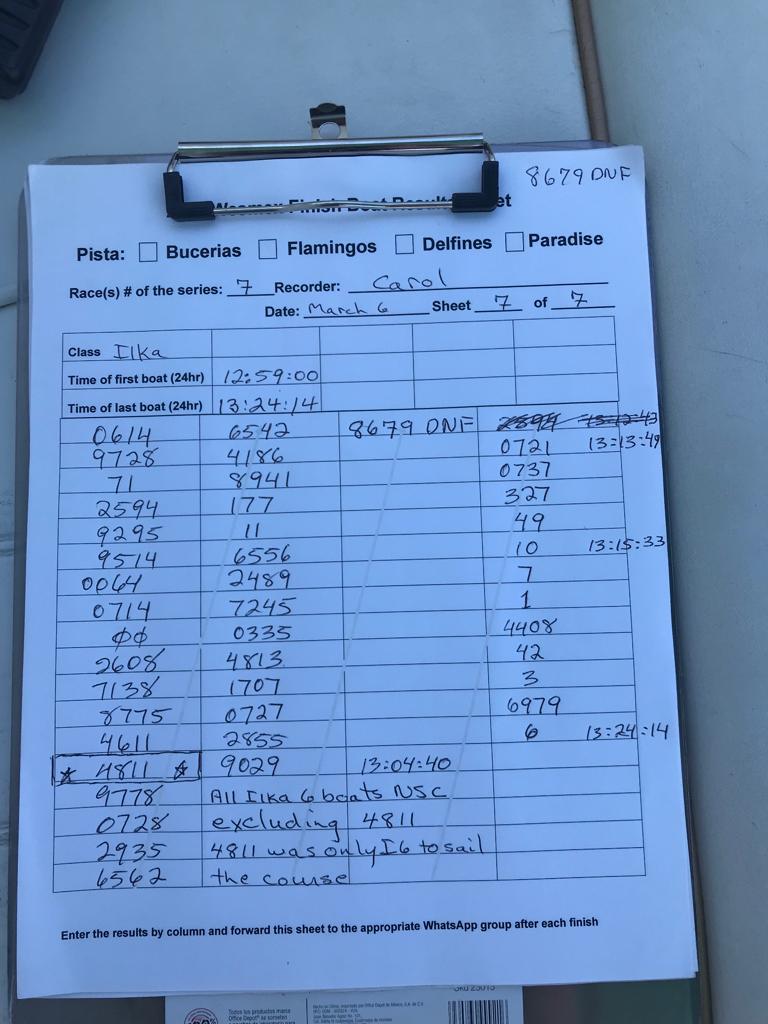 8679 DNF
Finish Boat
Pista: Bucerias Flamingos Delfines Paradise
Race(s) # of the series: 7 Recorder: Carol
Date: March 6 Sheet 7 of 7
Class Ilka
Time of first boat (24hr) 12:59:00
Time of last boat (24hr) 13:24:14
0614 6542 8679 DNF 2594 13:12:43
9728 4186 0721 13:13:49
71 8941 0737
2594 177 327
9295 11 49
9514 6556 10 13:15:33
0064 2489 7
0714 7245 1
00 0335 4408
2608 4813 42
7138 1707 3
8775 0727 6979
4611 2855 6 13:24:14
☆ 4811 ☆ 9029 13:04:40
9778 All Ilka 6 boats NSC
0728 excluding 4811
2935 4811 was only I6 to sail
6562 the course
Enter the results by column and forward this sheet to the appropriate WhatsApp group after each finish
Todos los productos marca
Office Depot